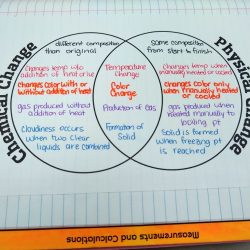 Chemical Change
different composition
than original
Changes temp w/o
addition of heat or ice
Changes color with or
without addition of heat
gas produced without
addition of heat
Cloudiness occurs
when two clear
liquids are combined
Temperature
Change
Color
Change
Production of Gas
Formation of
Solid
Physical Change
Same composition
from start to finish
Changes temp when
manually heated or cooled
Changes color only
when manually heated
or cooled
gas produced when
heated manually
to boiling pt
Solid is formed
when freezing pt
is reached
Measurements and Calculations